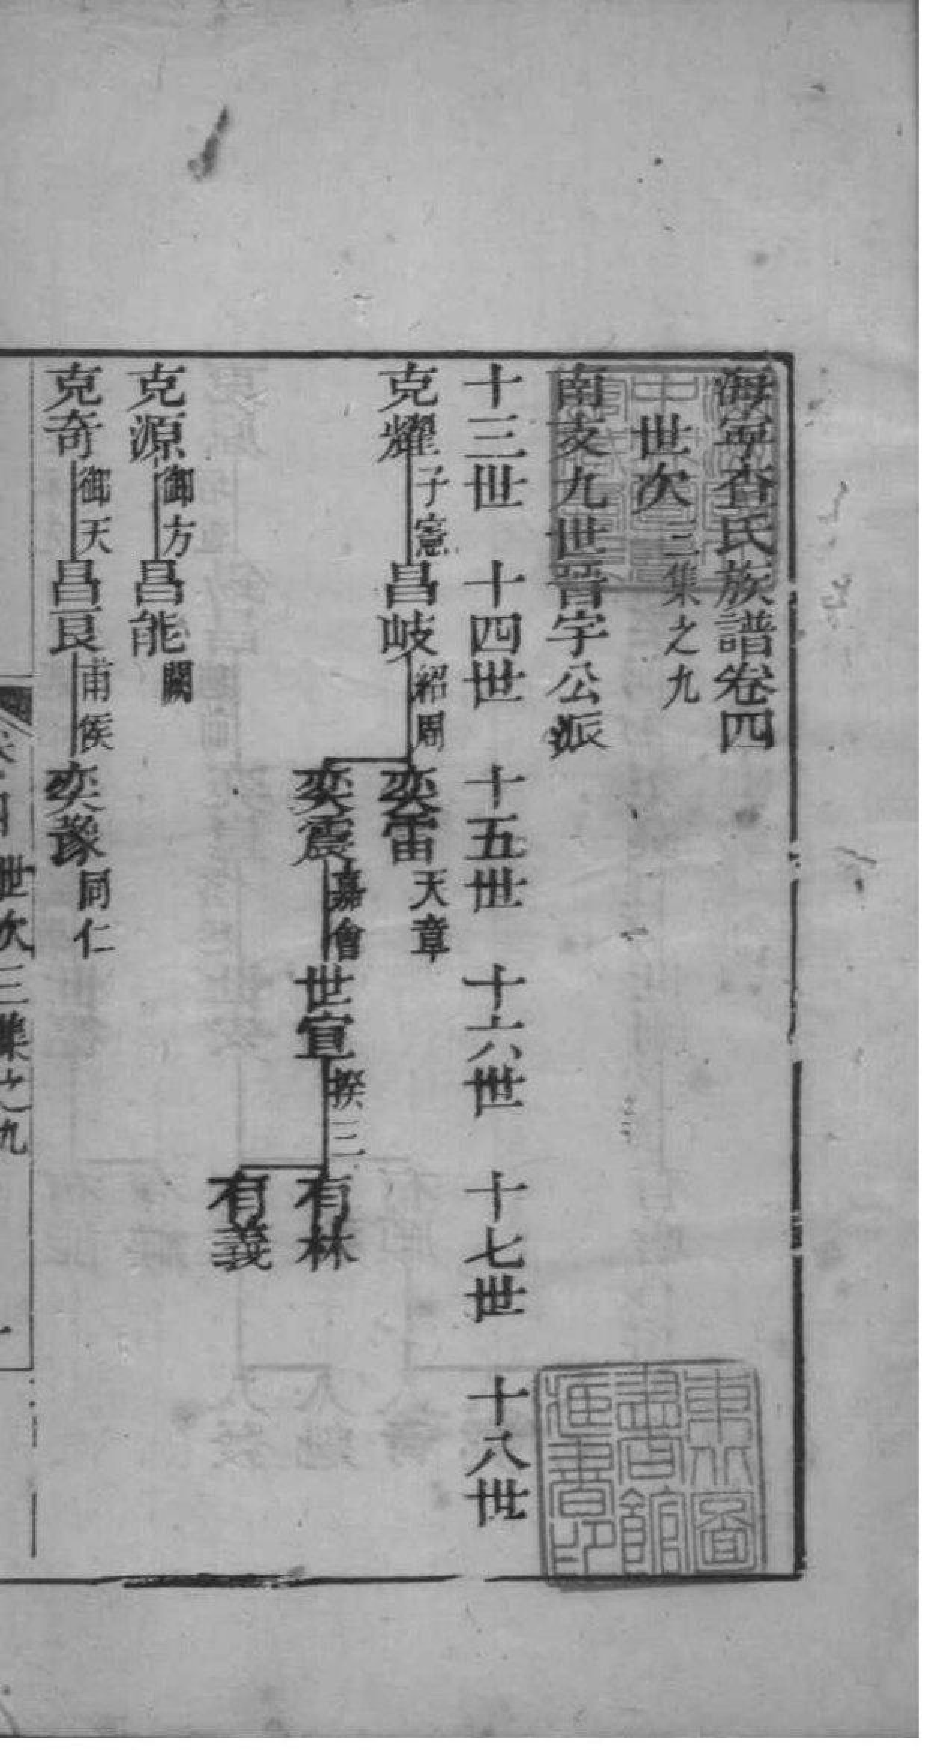 海寧查氏族譜卷四
世次三集之九
南支九世晉宇公派
十三世 十四世 十五世 十六世 十七世 十八世
克耀子憲 昌岐紹周 奕雷天章
奕震嘉會 世宣揆三 有林
有義
克源御方 昌能闕
克奇御天 昌良甫侯 奕豫同仁
世次三集之九 一